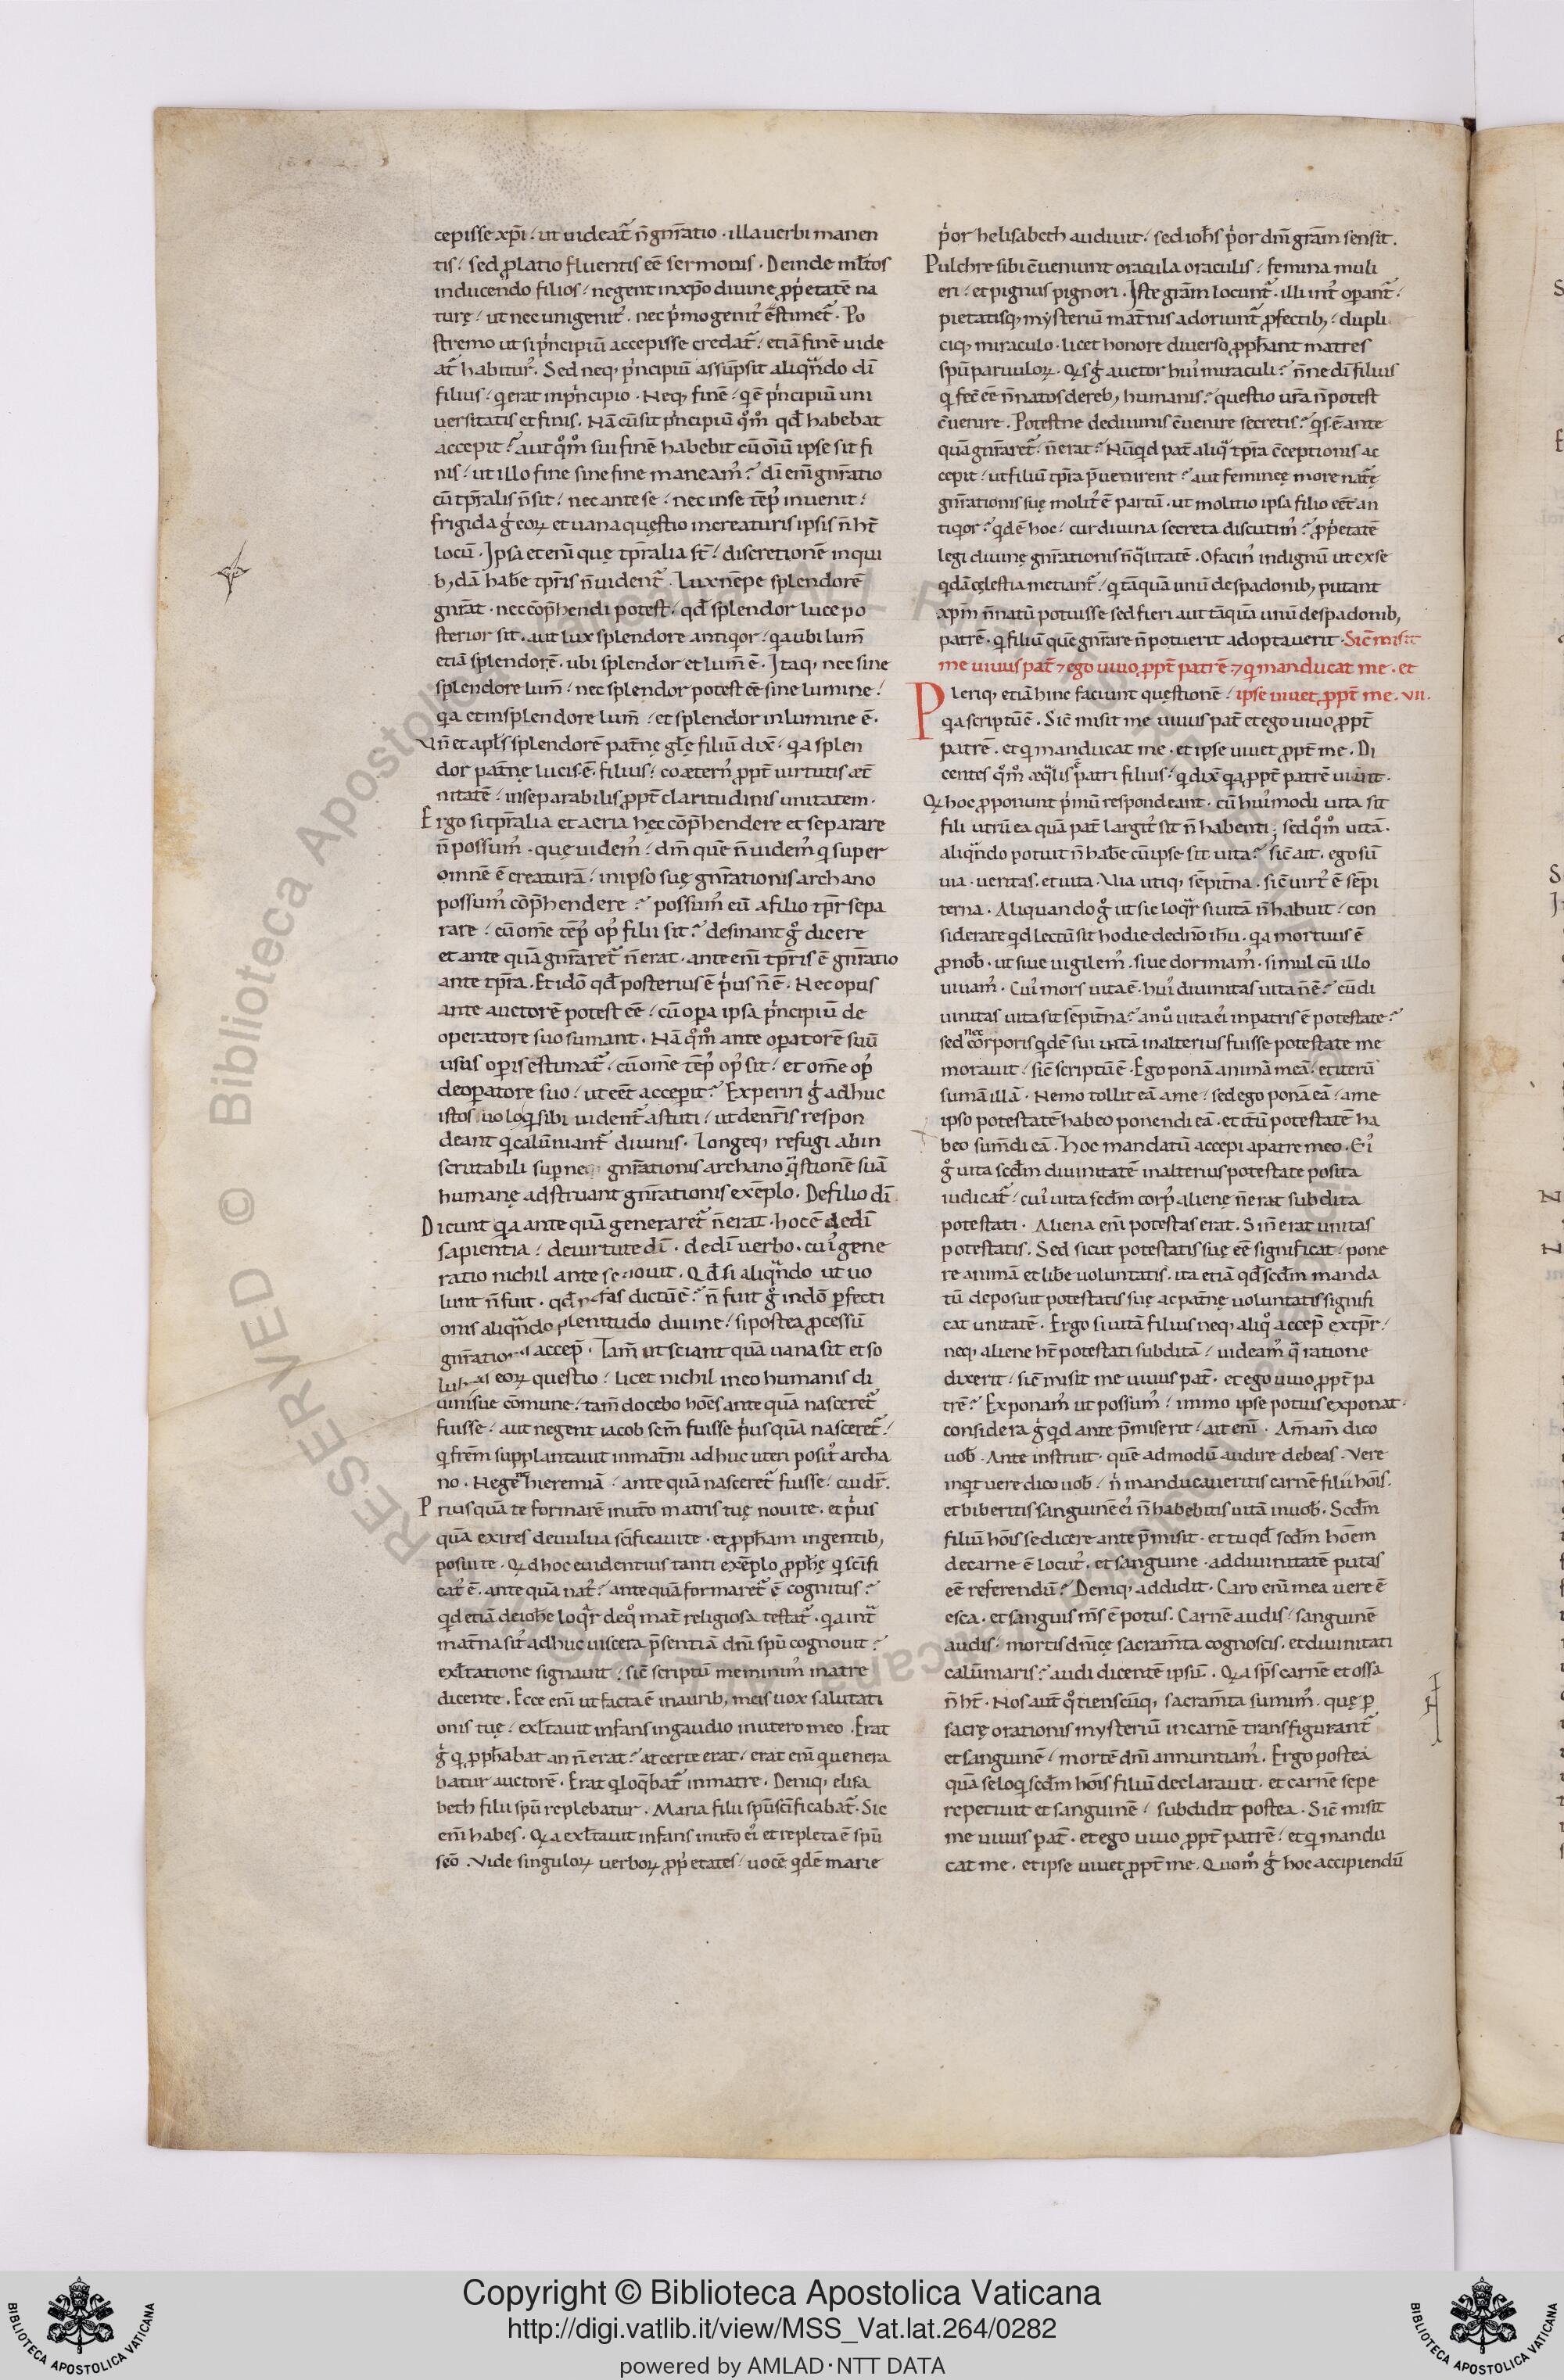 cepisse xp̄i. ut uideat᷑ n̄ gn̄ratio. illa uerbi manen
tis. sed ꝓlatio fluentis eē sermonis. Deinde ml̄tos
inducendo filios. negent in xp̄o diuinę ꝓp̓etatē na
turę. ut nec unigenit᷒. nec p̓mogenit᷒ ēstimet᷑. Po
stremo ut si p̓ncipiū accepisse credat᷑. etiā finē uide
at᷑ habitur᷒. Sed neq; p̓ncipiū assūpsit aliqn̄do dī
filius. q̓ erat in p̓ncipio. Neq; finē. q̓ ē p̓ncipiū uni
uersitatis et finis. Nā cū sit p̓ncipiū qͦm̊ qd̄ habebat
accepit? aut qͦm̊ sui finē habebit cū om̄iū ipse sit fi
nis. ut illo fine sine fine maneam᷒? dī eni gn̄ratio
cū tp̄ralis n̄ sit. nec ante se. nec in se tēp᷒ inuenit.
frigida g̓ eoꝝ et uana quęstio in creaturis ipsis n̄ ht̄
locū. Ipsa et eni quę tp̄ralia st̄. discretionē in qui
b; dā habe tp̄ris n̄ uident᷑. Lux nēpe splendorē
gn̄rat. nec cōp̄hendi potest. qd̄ splendor luce po
sterior sit. aut lux splendore antiq̓or. q̓a ubi lum̄
etiā splendorē. ubi splendor et lum̄ ē. Itaq; nec sine
splendore lum̄. nec splendor potest eē sine lumine.
q̓a et in splendore lum̄. et splendor in lumine ē.
Vn̄ et apl̄s splendorē pat̄nę gl̄ę filiū dix̄. q̓a splen
dor pat̄nę lucis ē. filius. coætern᷒ ꝓpt̄ uirtutis æt̄
nitatē. inseparabilis ꝓpt̄ claritudinis unitatem.
Ergo si tp̄ralia et aeria hęc cōp̄hendere et separare
n̄ possum᷒. quę uidem᷒. dm̄ quē n̄ uidem᷒ q̓ super
omnē ē creaturā. in ipso suę gn̄rationis archano
possum᷒ cōp̄hendere? possum᷒ eū a filio tp̄r sepa
rare. cū om̄e tēp᷒ op᷒ filii sit? desinant g̊ dicere
et ante quā gn̄raret᷑ n̄ erat. ante eni tp̄ris ē gn̄ratio
ante tp̄ra. Et idō qd̄ posterius ē p̓us n̄ ē. Nec opus
ante auctorē potest eē. cū opa ipsa p̓ncipiū de
operatore suo sumant. Nā qͦm̊ ante opatorē suū
usus opis ēstimat᷑. cū om̄e tēp᷒ op᷒ sit. et om̄e op᷒
de opatore suo. ut eēt accepit? Experiri g̓ adhuc
istos uolo q̓ sibi uident᷑ astuti. ut de nr̄is respon
deant q̓ calūniant᷑ diuinis. Longeq; refugi ab in
scrutabili superne gn̄rationis archano q̄stionē suā
humanę adstruant gn̄rationis exēplo. De filio dī
Dicunt q̓a ante quā generaret᷑ n̄ erat. hoc ē de dī
sapientia. de uirtute dī. de dī uerbo. cui᷒ gene
ratio nichil ante se nouit. Qd̄ si aliqn̄do ut uo
lunt n̄ fuit. qd̄ nefas dictū ē? n̄ fuit g̊ in dō perfecti
onis aliqn̄do plenitudo diuine. si postea ꝓcessū
gn̄rationis accep̄. Tam̄ ut sciant quā uana sit et so
eoꝝ questio. licet nichil in eo humanis di
uinisue cōmune. tam̄ docebo hoēs ante quā nasceret᷑
fuisse. aut negent iacob scm̄ fuisse p̓us quā nasceret᷑.
q̓ frēm supplantauit in mat̄ni adhuc uteri posit᷒ archa
no. Negent hieremiā. ante quā nasceret᷑ fuisse. cui dr̄.
Priusquā te formarē in ut̄o matris tuę noui te. et p̓us
quā exires de uulua sc̄ificaui te. et ꝓph̄am in gentib;
posui te. Qd̄ hoc euidentius tanti exēplo ꝓph̄ę q̓ scīfi
cat᷒ ē. ante quā nat᷒? ante quā formaret᷑ ē cognitus?
q̓d etiā de ioh̄e loq̓r de qͦ mat̄ religiosa testat᷑. q̓a int̄
mat̄na sit᷒ adhuc uiscera p̄sentiā dn̄i spū cognouit?
exl̄tatione signauit. sic̄ scriptū meminim᷒ matre
dicente. Ecce eni ut facta ē in aurib; meis uox salutati
onis tuę. exl̄tauit infans in gaudio in utero meo. Erat
g̓ q̓ ꝓph̄abat an n̄ erat? at certe erat. erat eni qui uenera
batur auctorē. Erat q̓ loq̄bat᷑ in matre. Deniq; elisa
beth filii spū replebatur. Maria filii spū scīficabat᷑. Sic
eni habes. Q̓a exl̄tauit infans in ut̄o ei᷒ et repleta ē spū
scō. Vide singuloꝝ uerboꝝ ꝓp̓etates. uocē q̓dē marie
p̓or helisabeth audiuit. sed ioh̄s p̓or dn̄i gr̄am sensit.
Pulchre sibi c̄ueniunt oracula oraculis. femina muli
eri. et pignus pignori. Iste gr̄am locunt᷑. illi int᷒ opant᷑.
pietatisq; mysteriū mat̄nis adoriunt᷑ ꝓfectib;. dupli
ciq; miraculo. licet honore diuerso ꝓph̄ant matres
spū paruuloꝝ. Q̓s g̓ auctor hui᷒ miraculi? n̄ne dī filius
q̓ fec̄ eē n̄ natos de reb; humanis? questio ur̄a n̄ potest
c̄uenire. Potest ne de diuinis c̄uenire secretis? q̓s ē ante
quā gn̄raret᷑. n̄ erat? Nūq̓d pat̄ aliq̄ tp̄ra c̄ceptionis ac
cepit. ut filiū tp̄ra p̄uenirent? aut feminęę more nat̄ę
gn̄rationis suę molit᷒ ē partū. ut molitio ipsa filio eēt an
tiq̓or? q̓d ē hoc. cur diuina secreta discutim᷒? ꝓp̓etatē
legi diuinę gn̄rationis n̄ q̄litatē. O facin᷒ indignū ut ex se
q̓dā cęlestia metiant᷑. q̓ tāquā unū de spadonib; putant
xpm̄ n̄ natū potuisse sed fieri aut tāquā unū de spadonib;
patrē. q̓ filiū quē gn̄rare n̄ potuerit adoptauerit. Sic̄ misit
me uiuus pat̄ ⁊ ego uiuo ꝓpt̄ patrē ⁊ q̓ manducat me. et
Pleriq; etiā hinc faciunt quęstionē. ipse uiuet ꝓpt̄ me. VII.
q̓a scriptū ē. Sic̄ misit me uiuus pat̄ et ego uiuo ꝓpt̄
patrē. et q̓ manducat me. et ipse uiuet ꝓpt̄ me. Di
centes qͦm̊ æq̄lis ē patri filius. q̓ dix̄ q̓a ꝓpt̄ patrē uiuit.
Q̓ hoc ꝓponunt p̓mū respondeant. cū hui᷒modi uita sit
fili utrū ea quā pat̄ largit᷒ sit n̄ habenti; sed qͦm̊ uitā.
aliqn̄do potuit n̄ habe cū ipse sit uita? sic̄ ait. ego sū
uia. ueritas. et uita. Via utiq; sēpit̄na. sic̄ uirt᷒ ē sēpi
terna. Aliquando g̊ ut sic loq̓r si uitā n̄ habuit. con
siderate q̓d lectū sit hodie de dn̄o ih̄u. q̓a mortuus ē
ꝓ nob̄. ut siue uigilem᷒. siue dormiam᷒. simul cū illo
uiuam᷒. Cui᷒ mors uita ē. hui᷒ diuinitas uita n̄ ē? cū di
uinitas uita sit sēpit̄na? an ū uita ei᷒ in patris ē potestate?
sed nec corporis q̓dē sui uitā in alterius fuisse potestate me
morauit. sic̄ scriptū ē. Ego ponā animā meā. et iterū
sumā illā. Nemo tollit eā a me. sed ego ponā eā. a me
ipso potestatē habeo ponendi eā. et it̄ū potestatē ha
beo sum̄di eā. Hoc mandatū accepi a patre meo. Ei᷒
g̊ uita scd̄m diuinitatē in alterius potestate posita
iudicat᷑. cui᷒ uita scd̄m corp᷒ alienę n̄ erat subdita
potestati. Aliena eni potestas erat. Si n̄ erat unitas
potestatis. Sed sicut potestatis suę eē significat. pone
re animā et lib̄e uoluntatis. ita etiā qd̄ scd̄m manda
tū deposuit potestatis suę ac pat̄nę uoluntatis signifi
cat unitatē. Ergo si uitā filius neq; aliqͦ accep̄ ex tp̄r.
neq; aliene ht̄ potestati subditā. uideam᷒ q̄ ratione
dixerit. sic̄ misit me uiuus pat̄. et ego uiuo ꝓpt̄ pa
trē? Exponam᷒ ut possum᷒. immo ipse potius exponat.
considera g̓ q̓d ante p̄miserit. ait eni. Am̄ am̄ dico
uob̄. Ante instruit. quē admodū audire debeas. Vere
inq̓t uere dico uob̄. n̓ manducaueritis carnē filii hōis.
et biberitis sanguinē ei᷒ n̄ habebitis uitā in uob̄. Scd̄m
filiū hōis se dicere ante p̄misit. et tu qd̄ scd̄m hoēm
de carne ē locut᷒. et sanguine. ad diuinitatē putas
eē referendū? Deniq; addidit. Caro eni mea uere ē
esca. et sanguis m̄s ē potus. Carnē audis. sanguinē
audis. mortis dn̄icę sacram̄ta cognoscis. et diuinitati
calūniaris? audi dicentē ipsū. Q̓a sp̄s carnē et ossa
n̄ ht̄. Nos aut̄ qͦtienscūq; sacram̄ta sumim᷒. quę p
sacrę orationis mysteriū in carnē transfigurant᷑
et sanguinē. mortē dn̄i annuntiam᷒. Ergo postea
quā se loq̓ scd̄m hōis filiū declarauit. et carnē sepe
repetiuit et sanguinē. subdidit postea. Sic̄ misit
me uiuus pat̄. et ego uiuo ꝓpt̄ patrē. et q̓ mandu
cat me. et ipse uiuet ꝓpt̄ me. Quom̊ g̓ hoc accipiendū
RESERVED © Biblioteca Apostolica Vaticana ALL RIGHTS RESERVED
Copyright © Biblioteca Apostolica Vaticana
http://digi.vatlib.it/view/MSS_Vat.lat.264/0282
powered by AMLAD·NTT DATA
BIBLIOTECA APOSTOLICA VATICANA
BIBLIOTECA APOSTOLICA VATICANA